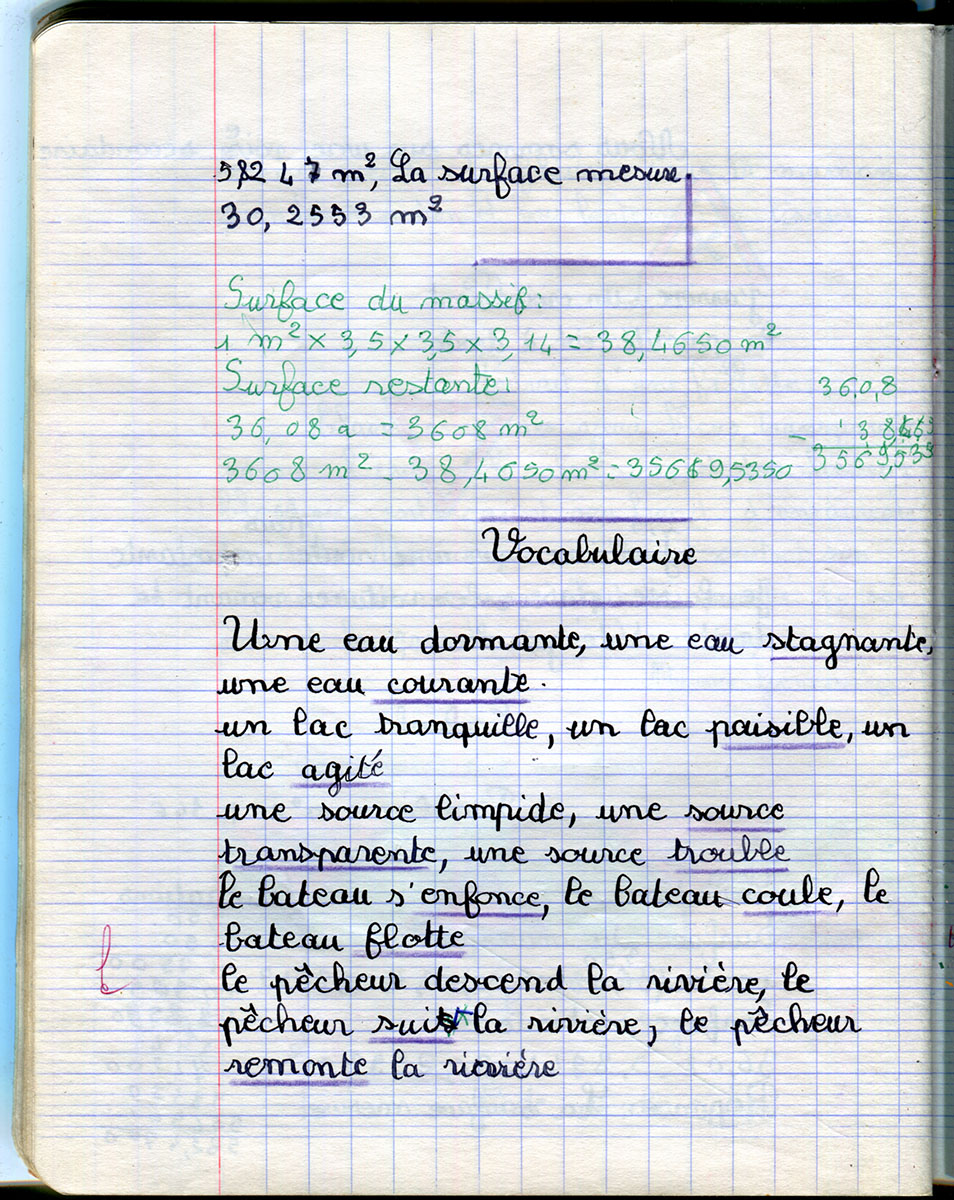 58247 m², La surface mesure
30,2553 m²
Surface du massif:
1 m² × 3,5 × 3,5 × 3,14 = 38,4650 m²
Surface restante:
36,08 a = 3608 m²
3608 m² - 38,4650 m² = 3569,5350
360,8
- 38,465
3569,535
Vocabulaire
Une eau dormante, une eau stagnante,
une eau courante.
un lac tranquille, un lac paisible, un
lac agité
une source limpide, une source
transparente, une source trouble
le bateau s'enfonce, le bateau coule, le
bateau flotte
le pêcheur descend la rivière, le
pêcheur suit la rivière, le pêcheur
remonte la rivière